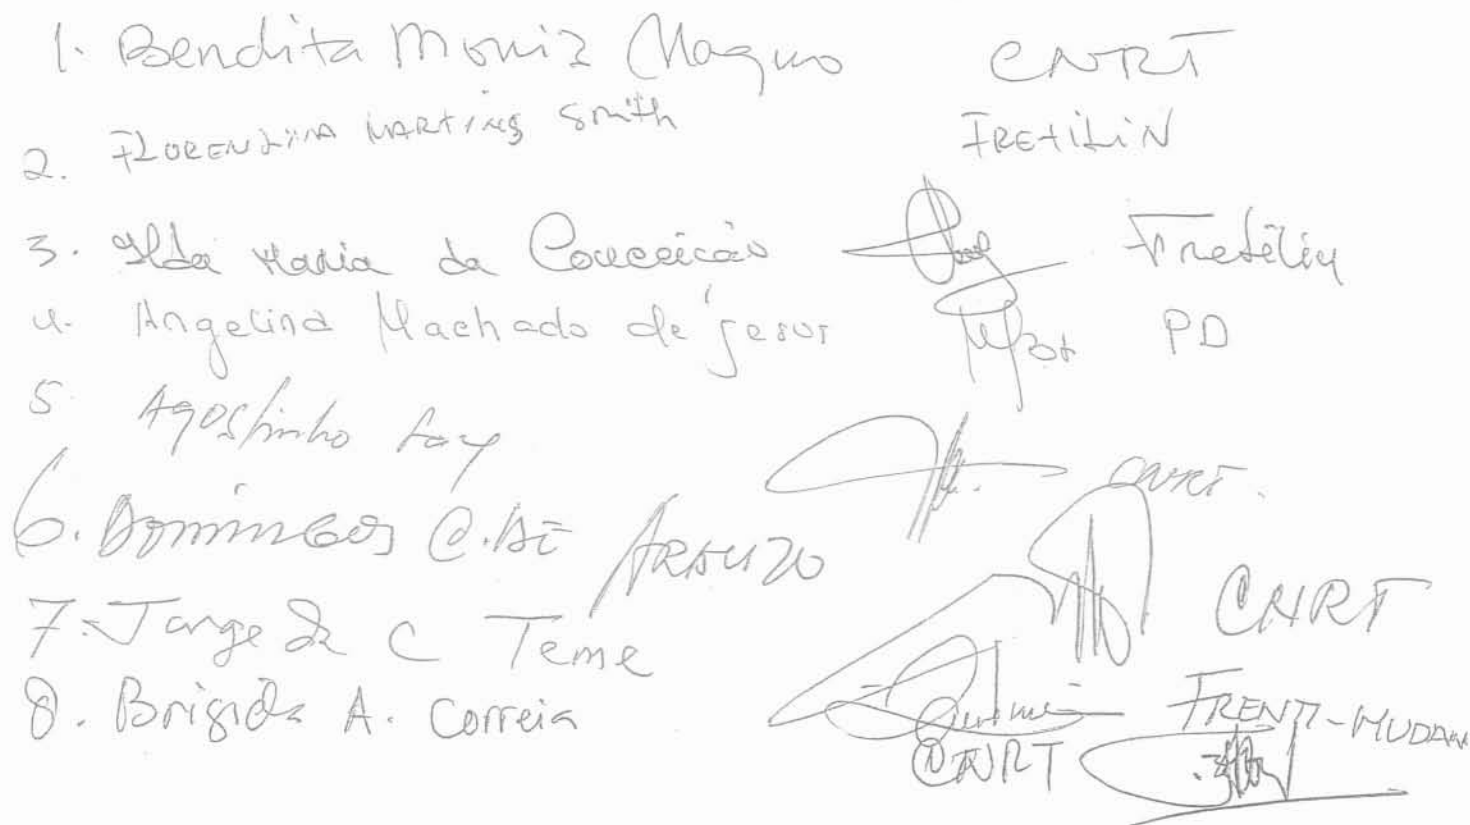 1. Bendita Moniz Magno CNRT
2. FLORENTINA MARTINS Smith FRETILIN
3. Ilda Maria da Conceição Fretilin
4. Angelina Machado de Jesus PD
5. Agostinho Lay CNRT.
6. DOMINGOS C. DE ARAUJO CNRT
7. Jorge da C Teme FRENTI-MUDAN
8. Brigida A. Correia CNRT